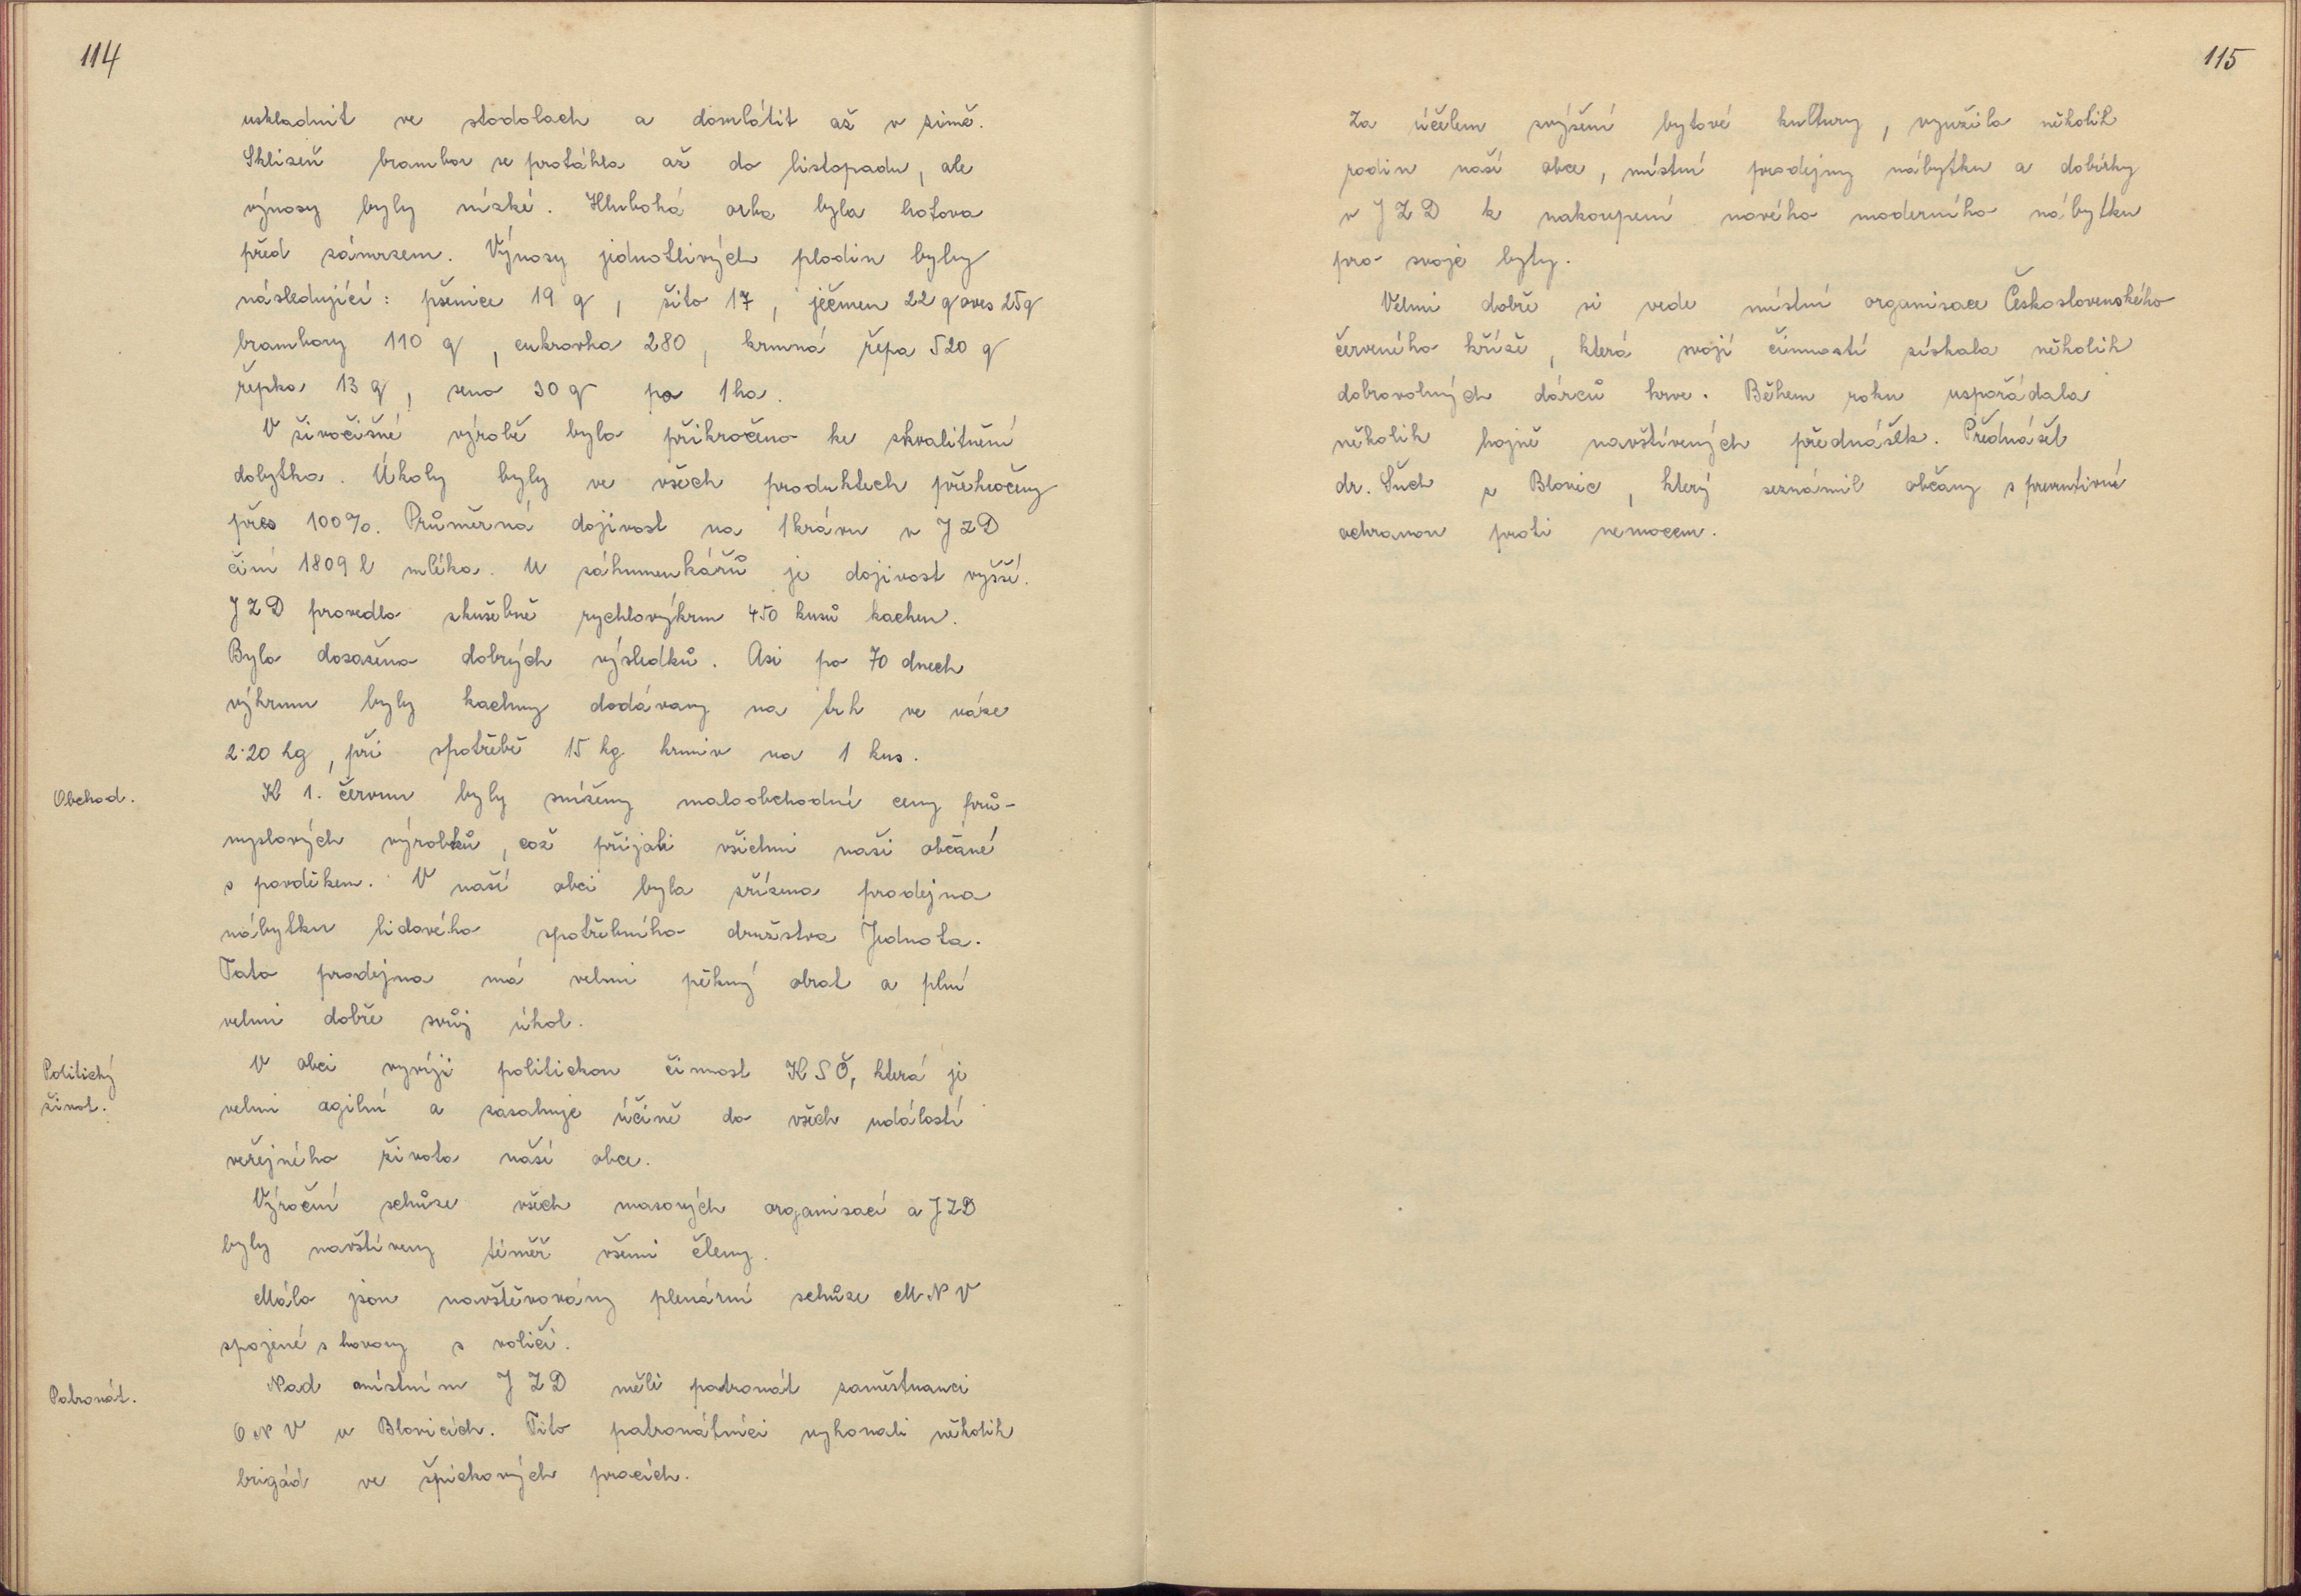 114
uskladnit ve stodolach a domlátit až v zimě.
Sklizeň brambor se protáhla až do listopadu, ale
výnosy byly nízké. Hluboká orba byla hotova
před zámrzem. Výnosy jednotlivých plodin byly
následující: pšenice 19 q, žito 17, ječmen 22 q oves 25 q
brambory 110 q, cukrovka 280, krmná řepa 520 q
řepka 13 q, seno 30 q po 1 ha.
V živočišné výrobě bylo přikročeno ke skvalitnění
dobytka. Úkoly byly ve všech produktech překročeny
přes 100%. Průměrná dojivost na 1 krávu v JZD
činí 1809 l mléka. U záhumenkářů je dojivost vyšší.
JZD provedlo zkušebně rychlovýkrm 450 kusů kachen.
Bylo dosaženo dobrých výsledků. Asi po 70 dnech
výkrmu byly kachny dodávany na trh ve váze
2·20 kg, při spotřebě 15 kg krmiv na 1 kus.
Obchod.
K 1. červnu byly sníženy maloobchodní ceny prů-
myslových výrobků, což přijali všichni naši občané
s povděkem. V naší obci byla zřízena prodejna
nábytku lidového spotřebního družstva Jednota.
Tato prodejna má velmi pěkný obrat a plní
velmi dobře svůj úkol.
Politický
život.
V obci vyvíji politickou činnost KSČ, která je
velmi agilní a zasahuje účině do všech událostí
veřejného života naší obce.
Výroční schůze všech masových organisací a JZD
byly navštíveny téměř všemi členy.
Málo jsou navštěvovány plenární schůze MNV
spojené s hovory s voliči.
Patronát.
Nad místním JZD měli patronát zaměstnanci
ONV v Blovicích. Tito patronátníci vykonali několik
brigád ve špičkových pracích.
115
Za účelem zvýšení bytové kultury, využila několik
rodin naší obce, místní prodejny nábytku a dobírky
v JZD k nakoupení nového moderního nábytku
pro svoje byty.
Velmi dobře si vede místní organisace Československého
červeného kříže, která svojí činností získala několik
dobrovolných dárců krve. Během roku uspořádala
několik hojně navštívených přednášek. Přednášel
dr. Šuch z Blovic, který seznámil občany s preventivní
ochranou proti nemocem.